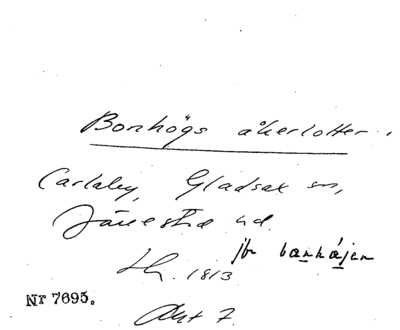 Bonhögs åkerlotter.
Carlaby, Gladsax sn,
Järrestad hd.
jfr banhǻjen
Lh. 1813
Nr 7695.
Akt 7.